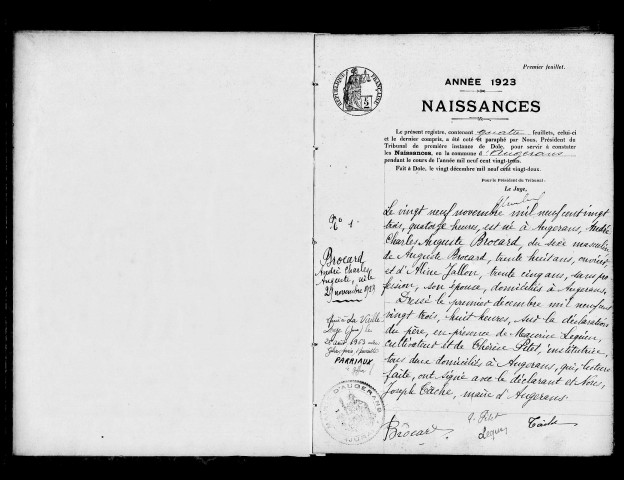 Premier feuillet.
RÉPUBLIQUE FRANÇAISE
ANNÉE 1923
NAISSANCES
Le présent registre, contenant quatre feuillets, celui-ci
et le dernier compris, a été coté et paraphé par Nous, Président du
Tribunal de première instance de Dole, pour servir à constater
les Naissances, en la commune d'Augerans
pendant le cours de l'année mil neuf cent vingt-trois.
Fait à Dole, le vingt décembre mil neuf cent vingt-deux.
Pour le Président du Tribunal :
Le Juge,
No 1
Brocard
André Charles
Auguste, né le
29 novembre 1923
La Vieille
Loye (Jura) le
1953
PARRIAUX
Le vingt neuf novembre mil neuf cent vingt
trois, quatorze heures, est né à Augerans, André
Charles Auguste Brocard, du sexe masculin
de Auguste Brocard, trente huit ans,
et d'Aline Jallon, trente cinq ans, sans pro
fession, son épouse, domiciliés à Augerans.
Dressé le premier décembre mil neuf cent
vingt trois, huit heures, sur la déclaration
du père, en présence de Maurice Lequin,
cultivateur et de Thérèse Petot, institutrice,
tous deux domiciliés à Augerans, qui, lecture
faite, ont signé avec le déclarant et Nous,
Joseph Tâche, maire d'Augerans.
MAIRIE D'AUGERANS
JURA
Brocard
T. Petot
Lequin
Tâche